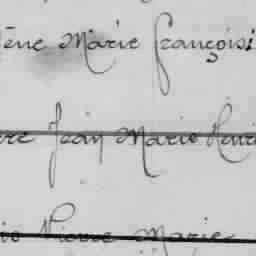 ène Marie françois
re Jean Marie Henri
Pierre Marie